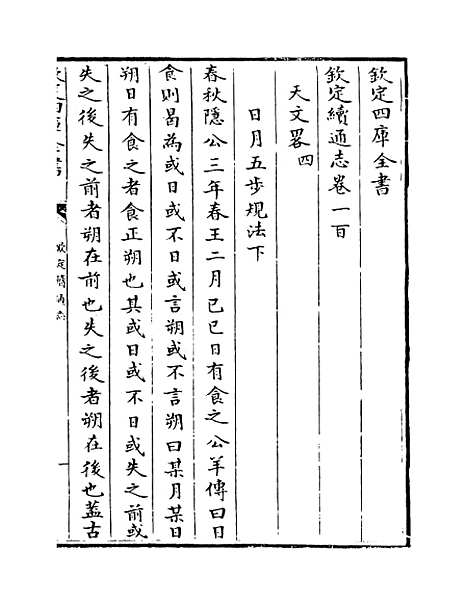 欽定四庫全書
欽定續通志卷一百
天文畧四
日月五步規法下
春秋隱公三年春王二月己巳日有食之公羊傳曰日
食則曷為或日或不日或言朔或不言朔曰某月某日
朔日有食之者食正朔也其或日或不日或失之前或
失之後失之前者朔在前也失之後者朔在後也葢古
欽定四庫全書
欽定續通志
一